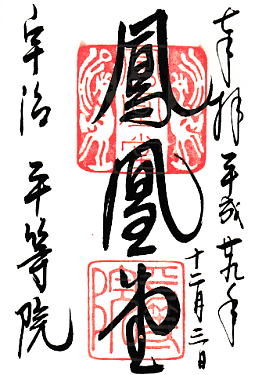 奉拝 平成廿九年
十二月三日
鳳凰堂
宇治 平等院